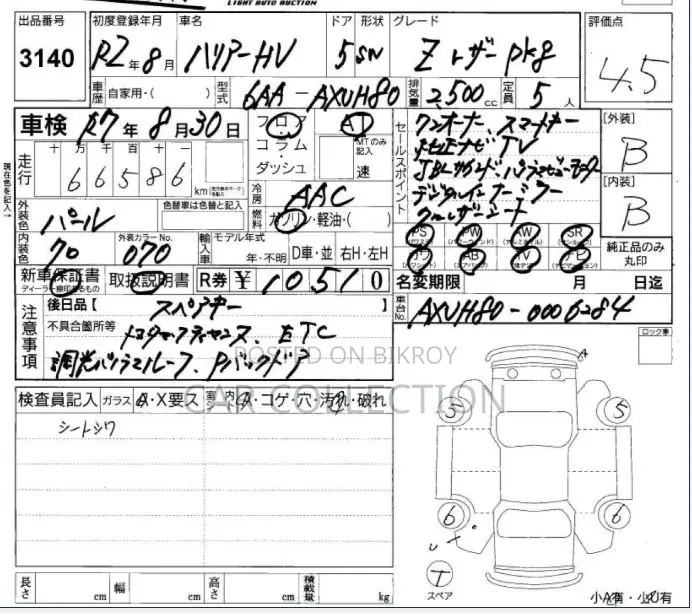 LIGHT AUTO AUCTION
出品番号 初度登録年月 車名 ドア 形状 グレード 評価点
3140 R2年8月 ハリアーHV 5 SW Z レザーpkg 4.5
車歴 自家用・( ) 型式 6AA-AXUH80 排気量 2,500cc 定員 5人
車検 R7年8月30日 フロア・コラム・ダッシュ AT MTのみ記入 速
セールスポイント
ワンオーナー、スマートキー
純正ナビ TV
JBLサウンド、パノラミックビューモニター
デジタルインナーミラー
[外装] B
[内装] B
走行 十万千百十一
66586 km
冷房 AAC
燃料 ガソリン・軽油・( )
外装色 パール 色替車は色替と記入
内装色 外装カラーNo. 070
輸入車 モデル年式 年・不明 D車・並 右H・左H
PS PW AW SR
AB TV ナビ
純正品のみ丸印
新車保証書 取扱説明書 R券 ¥10,510
ディーラー捺印あるもの
名変期限 月 日迄
車台No. AXUH80-0006284
注意事項
後日品【 スペアキー 】
不具合箇所等 トヨタセーフティセンス、ETC
調光パノラマルーフ、Pバックドア
POSTED ON BIKROY
CAR COLLECTION
ロック車
検査員記入 ガラス A・X要ス 室内 A・コゲ・穴・汚れ・破れ
シートシワ
A
5 5
6 6
U
T
スペア
小A有・小U有
長さ cm 幅 cm 高さ cm 積載量 kg
現在色を記入